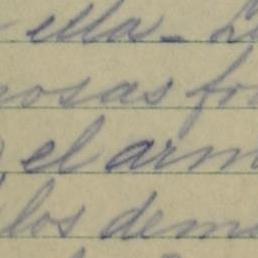 ella - L
osas fo
el arm
los dem